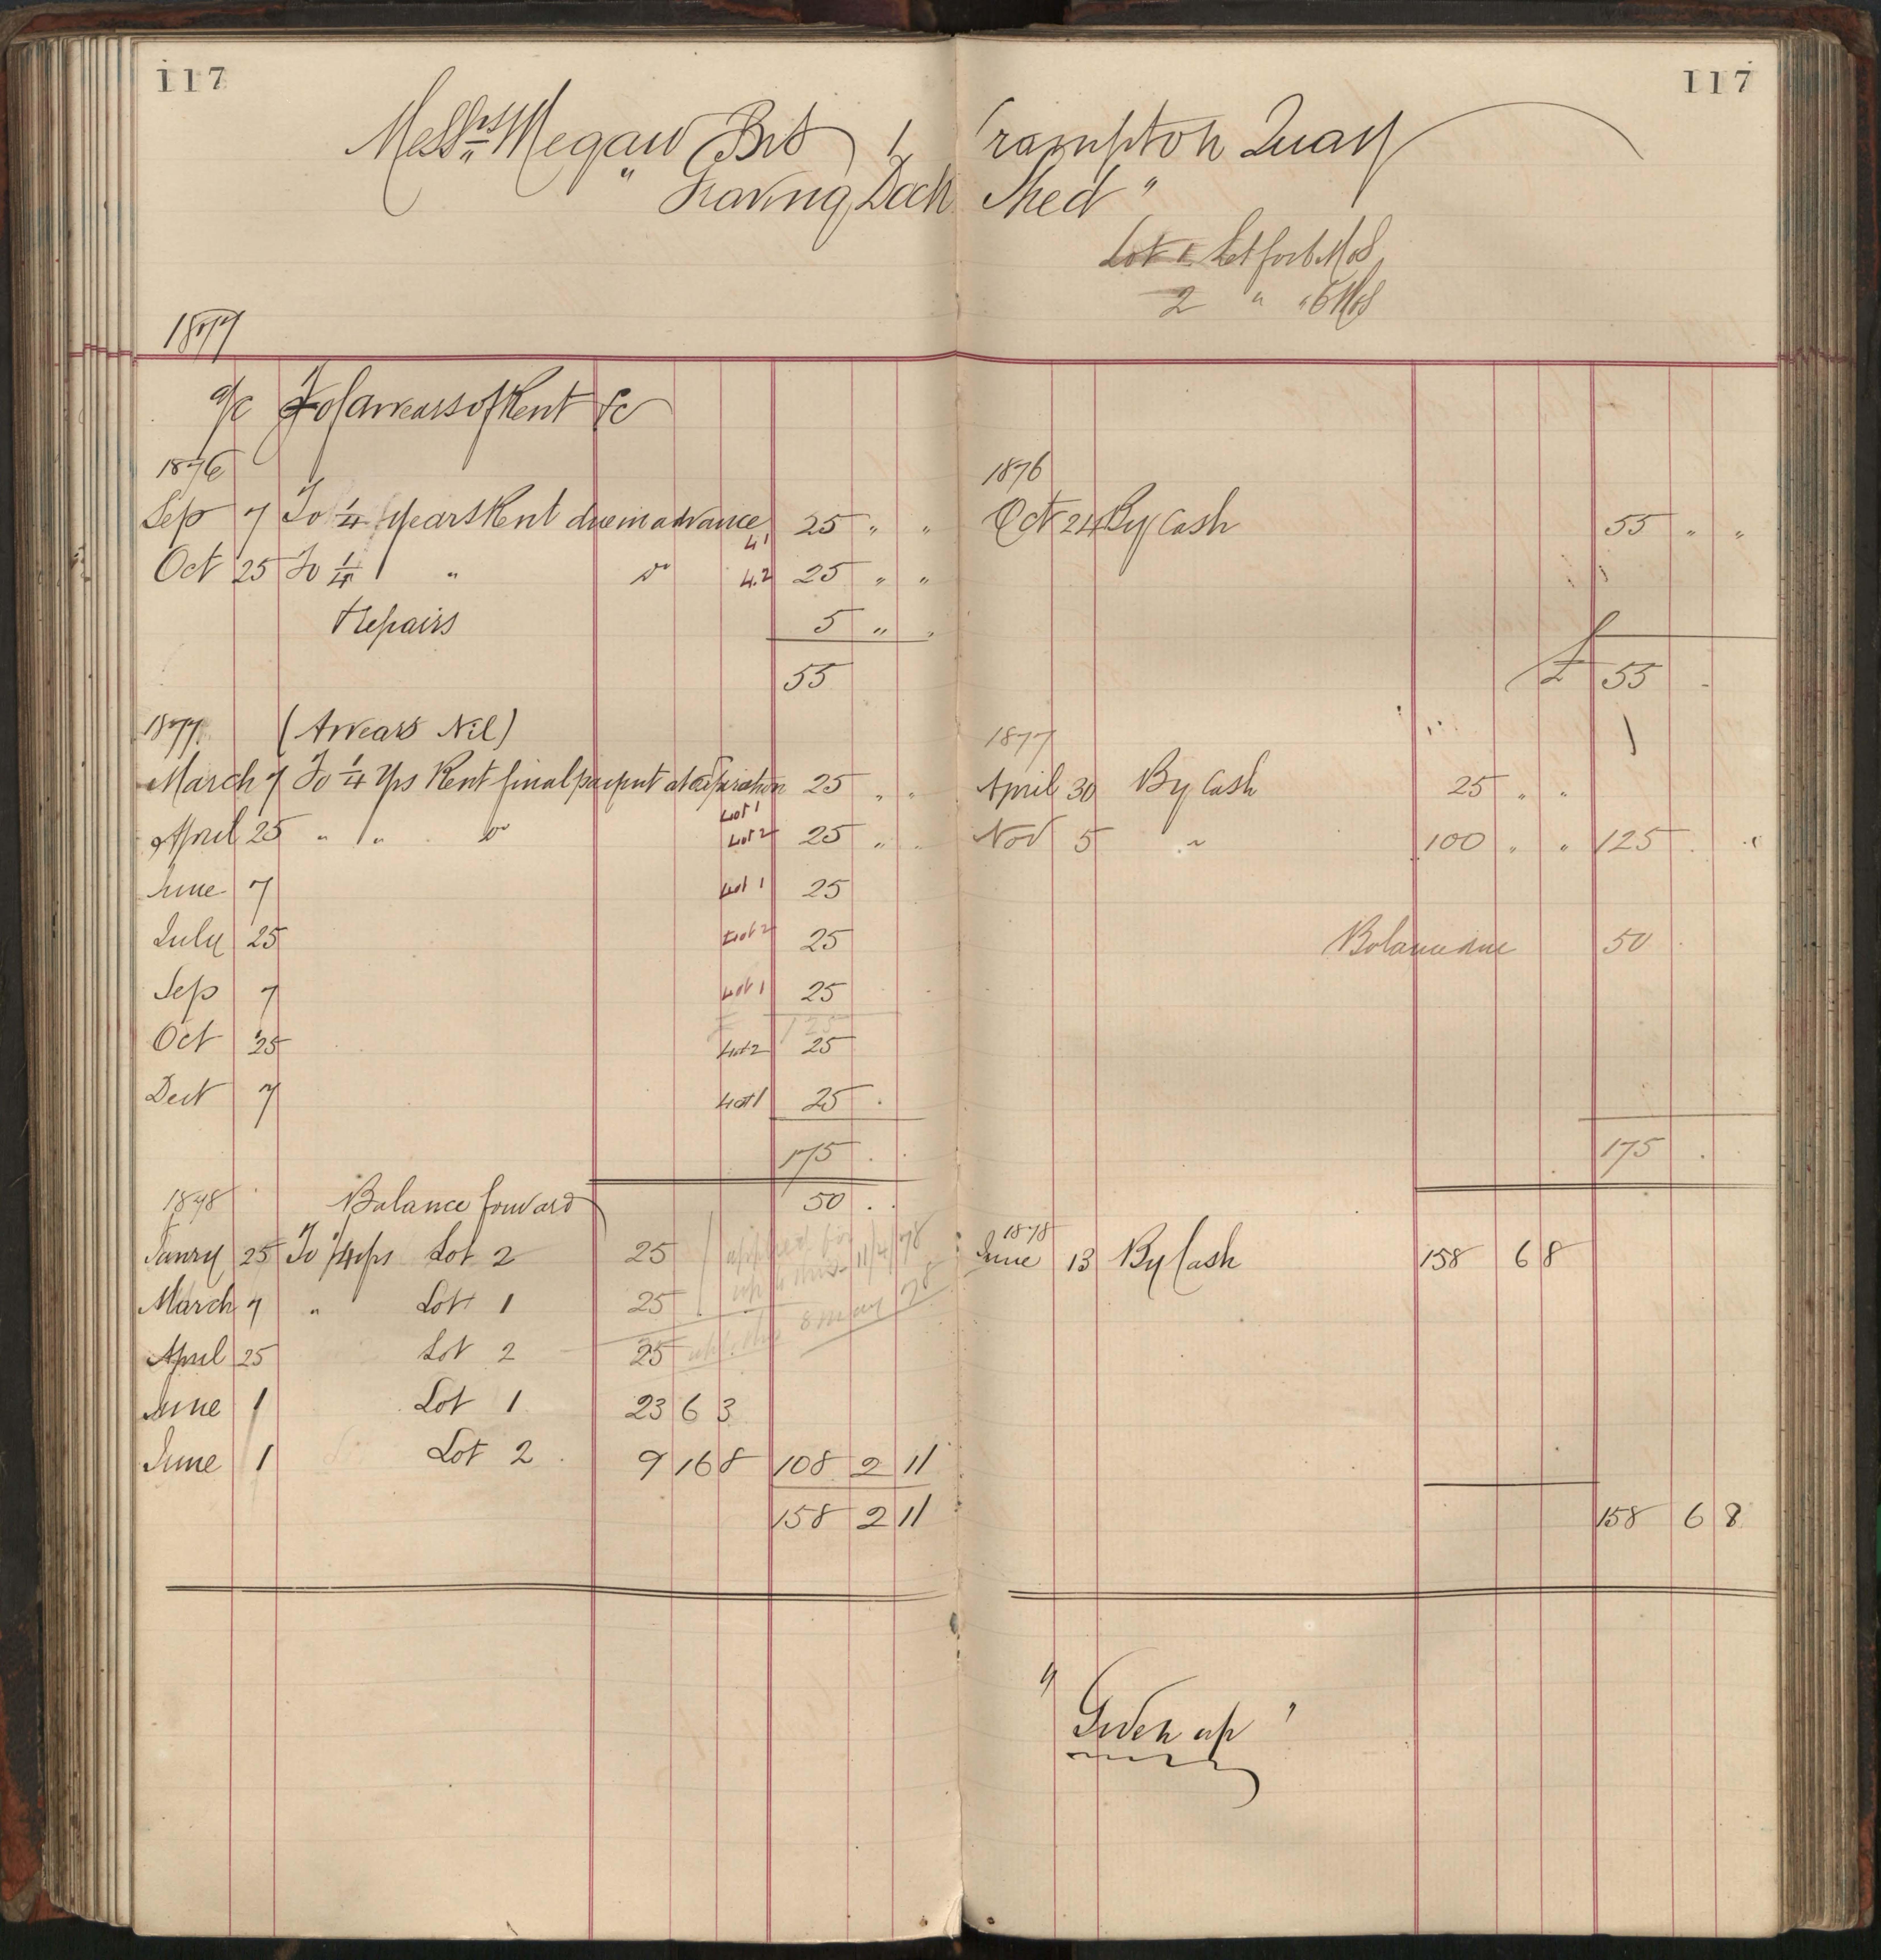 117 117
Messrs Megaw Bros 1 Crampton Quay
"Graving Dock Shed"
Lot 1 Let for 6 Mos
2 " " 6 Mos
1877
a/c To Arrears of Rent &c
1876
Sep 7 To 1/4 years Rent due in advance L1 25 " "
Oct 25 To 1/4 " Do L.2 25 " "
Repairs 5 " "
55
1877 (Arrears Nil)
March 7 To 1/4 Yrs Rent final paymt at expiration Lot 1 25 " "
April 25 " " Do Lot 2 25 " "
June 7 Lot 1 25
July 25 Lot 2 25
Sep 7 Lot 1 25
125
Oct 25 Lot 2 25
Dect 7 Lot 1 25
175
1878 Balance forward 50
Janry 25 To 1/4 yrs Lot 2 25
March 7 " Lot 1 25
applied for
up to this 11/4/78
April 25 Lot 2 25
8 May 78
June 1 Lot 1 23 6 3
June 1 Lot 2 9 16 8 108 2 11
158 2 11
1876
Oct 24 By Cash 55 " "
£ 55
1877
April 30 By Cash 25 " "
Nov 5 " 100 " " 125
Balance due 50
175
1878
June 13 By Cash 158 6 8
158 6 8
"Given up"